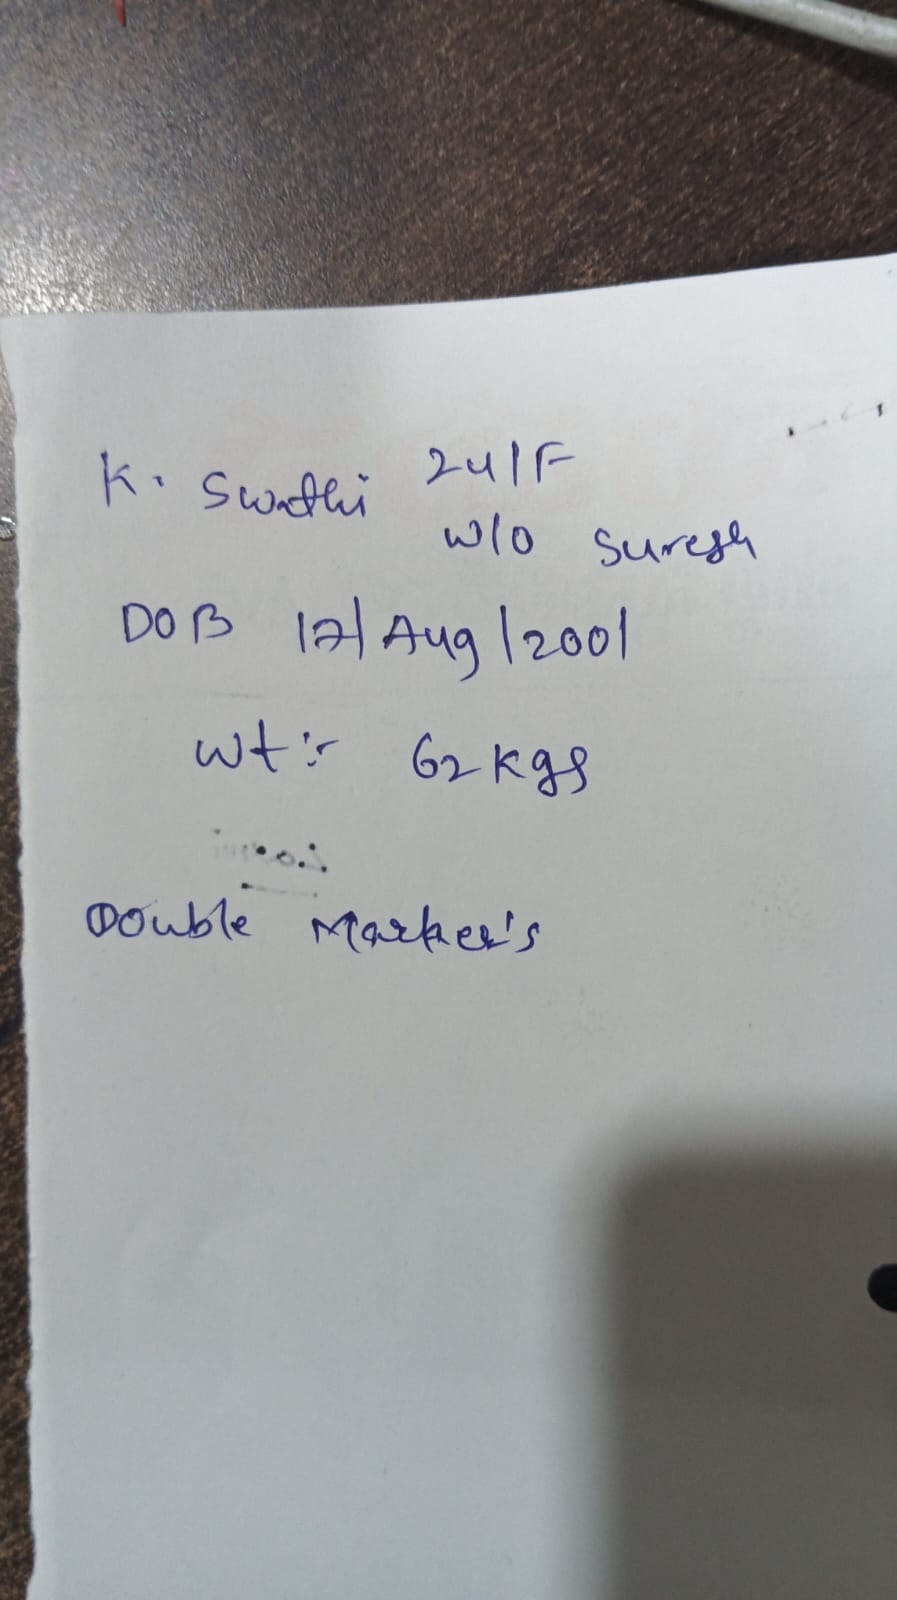 K. Swathi 24/F
W/o Suresh
DOB 12/Aug/2001
Wt :- 62 kgs
Double Marker's